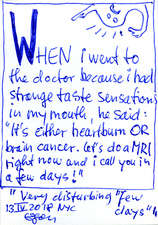 WHEN i went to
the doctor because i had
strange taste sensations
in my mouth, he said:
"It's either heartburn OR
brain cancer. Let's do a MRI
right now and i call you in
a few days!"
"Very disturbing few
days"
13 IV 2018 NYC